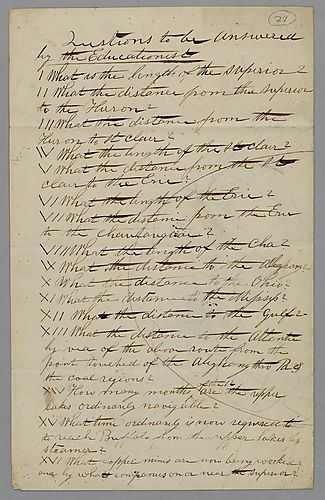 21
Questions to be answered
by the Educationist
I What is the length of the superior?
II What the distance from the superior
to the Huron?
III What the distance from the
Huron to St Clair?
IV What the length of the St clair?
V What the distance from the St
clair to the Erie?
VI What the length of the Erie?
VII What the distance from the Erie
to the
VIII What the length of the Cha?
IX What the distance to the
X What the distance to the Ohio?
XI What the distance to the Missip?
XII What the distance to the Gulf?
XIII What the distance to the Atlantic
by vice of the above route from the
point touched of the Aligha to the
the coal regions?
XIV How many months of the are the upper
lakes ordinarily navigable?
XV What time ordinarily is now required to
to reach Buffalo from the upper lakes by
steamer?
XVI What copper mines are now being worked?
and by what companies on or near the superior?